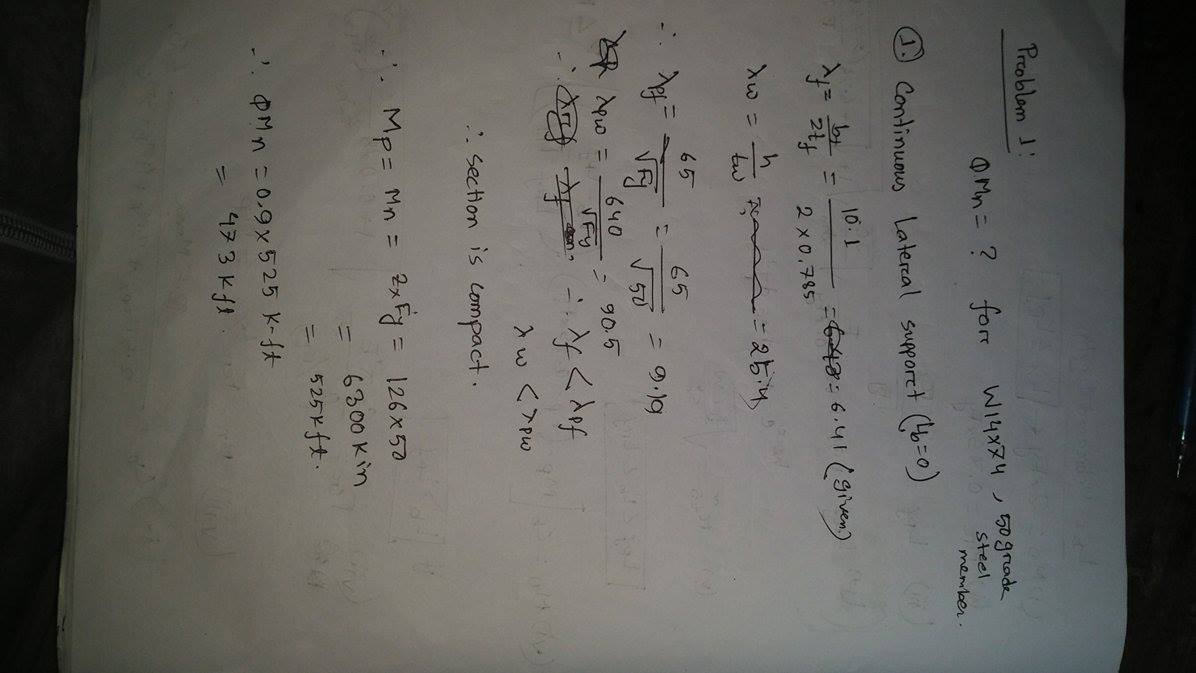 Problem 1:
ΦMn = ? forr W14x74, 50 grade steel member.
1. Continuous Latercal supporet (Lb=0)
λf = bf/2tf = 10.1/(2 x 0.785) = 6.41 (given)
λw = h/tw = 25.4
∴ λpf = 65/√Fy = 65/√50 = 9.19
λpw = 640/√Fy = 90.5
∴ λf < λpf
λw < λpw
∴ section is compact.
∴ Mp = Mn = Z x Fy = 126 x 50
= 6300 K in
= 525 K ft.
∴ ΦMn = 0.9 x 525 K-ft
= 473 K ft.